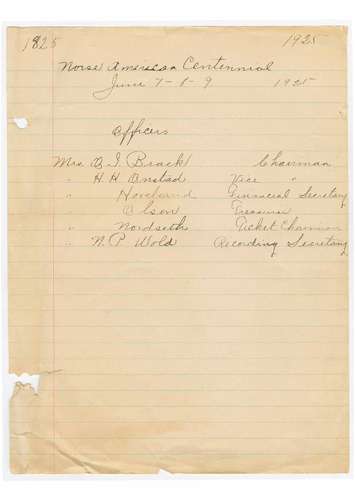 1825 1925
Norse American Centennial
June 7-8-9. 1925
Officers
Mrs. O I Brack Chairman
" H. H. Onstad Vice "
" Financial Secretary
Olson Treasurer
" Nordseth Ticket Chairman
" N. P. Wold Recording Secretary